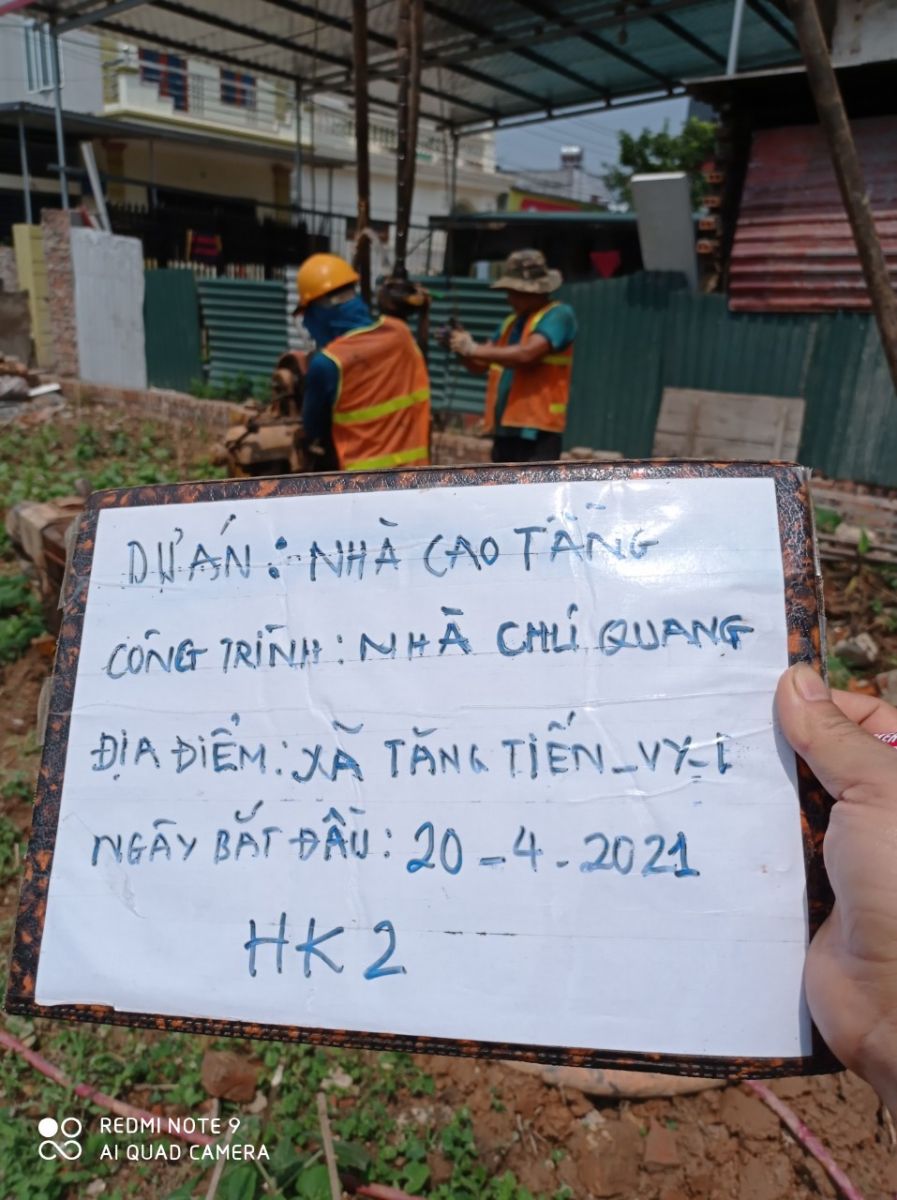 DỰ ÁN: NHÀ CAO TẦNG
CÔNG TRÌNH: NHÀ CHÚ QUANG
ĐỊA ĐIỂM: XÃ TĂNG TIẾN_VY_
NGÀY BẮT ĐẦU: 20-4-2021
HK2
REDMI NOTE 9
AI QUAD CAMERA